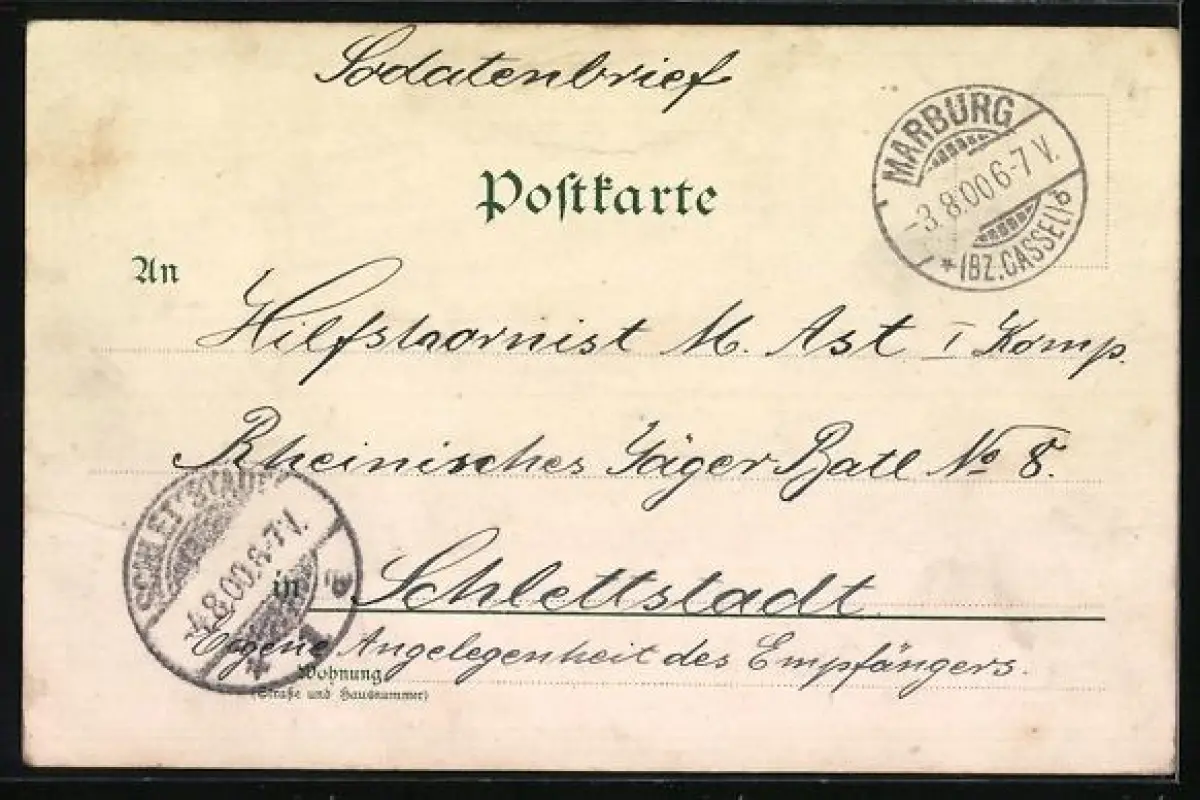 Sodatenbrief
MARBURG
-3.8.00.6-7 V.
* (BZ. CASSEL) a
Poſtkarte
An
Hilfshornist M. Ast I Komp.
Rheinisches Jäger Batl No 8.
SCHLETTSTADT
-4.8.00.6-7 V.
in Schlettstadt
Eigene Angelegenheit des Empfängers.
Wohnung
(Straße und Hausnummer)